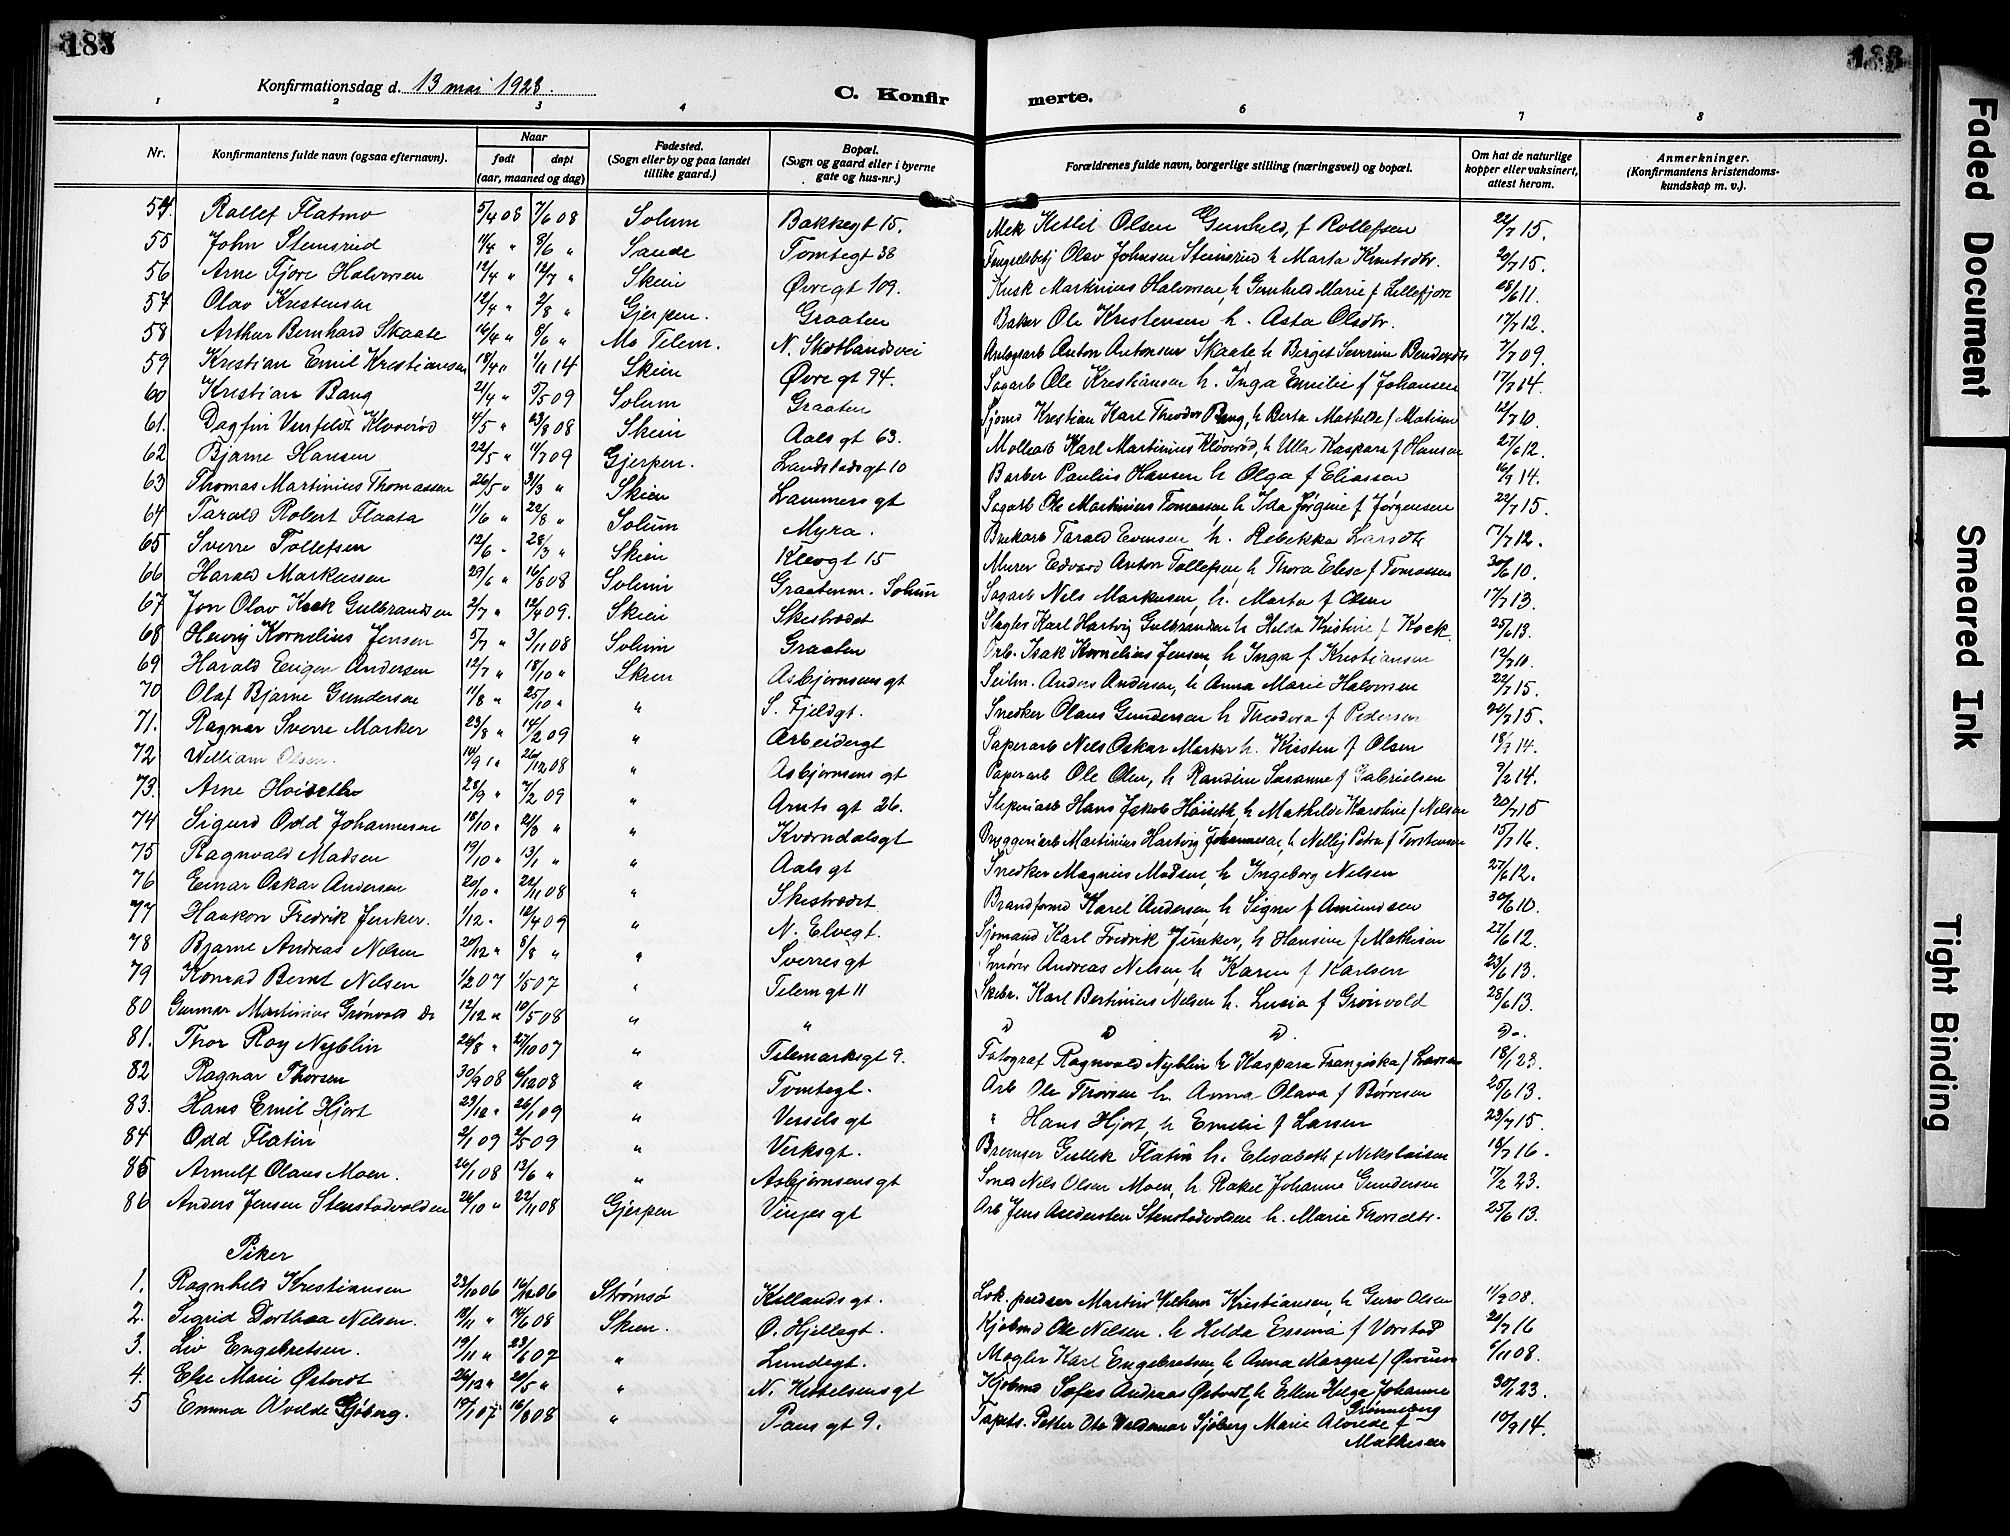 183
Konfirmationsdag d. 13 mai 1923.
C. Konfirmerte.
1 2 3 4 6 7 8
Nr. Konfirmantens fulde navn (ogsaa efternavn). Naar født døpt (aar, maaned og dag) Fødested. (Sogn eller by og paa landet tillike gaard.) Bopæl. (Sogn og gaard eller i byerne gate og hus-nr.) Forældrenes fulde navn, borgerlige stilling (næringsvei) og bopæl. Om hat de naturlige kopper eller vaksinert, attest herom. Anmerkninger. (Konfirmantens kristendomskundskap m. v.).
54. Rollef Flatmo 5/4 08 7/6 08 Solum Bakkegt 15. Mek Ketil Olsen Gunhild, f Rollefsen 22/7 15.
55 John Stensrud 11/4 " 8/6 " Sande Tomtegt 38 Olav Johnsen Steinsrud h Marta Knutsdtr. 20/7 15.
56 Arne Fjore Halvorsen 12/4 " 12/7 " Skien Øvregt 109. Kusk Martinius Halvorsen, h Gunhild Marie f Lillefjore 28/6 11.
57 Olav Kristensen 12/4 " 2/8 " Gjerpen. Graaten Baker Ole Kristensen h. Asta Olsdtr. 17/7 12.
58 Arthur Bernhard Skaate 16/4 " 8/6 " Mo Telem. N. Skotlandsvei Anton Antonsen Skaate, h Berget Severine 7/7 09.
59 Kristian Emil Kristiansen 18/4 " 1/11 14 Skien Øvregt 94. Sagarb Ole Kristiansen h. Inga Emilie f Johansen 17/7 14.
60 Kristian Bang 21/4 " 5/5 09 Solum Graaten Sjømd Kristian Karl Theodor Bang, h Berta Mathilde f Matisen 12/7 10.
61. Dagfin Klovrød 4/5 " 23/8 08 Skien Aalsgt 63. Karl Martinius Kløvrød, h Ulla Kaspara f Hansen 27/6 12.
62 Bjarne Hansen 22/5 " 11/7 09 Gjerpen. Landstadsgt 10 Barber Paulius Hansen h Olga f Eliassen 16/9 14.
63 Thomas Martinius Thomassen 26/5 " 31/3 " Skien Lammersgt Sagarb Ole Martinius Tomassen, h Ida Jørgine f Jørgensen 22/7 15.
64 Tarald Robert Flaata 11/6 " 22/8 " Solum Myra. Brukarb Tarald Evensen h. Rebekka Larsdtr 17/7 12.
65 Sverre Tollefsen 12/6 " 28/3 " Skien Klevgt 15 Murer Edvard Anton Tollefsen, h Thora Elise f Tomassen 30/6 10.
66 Harald Markussen 29/6 " 16/8 08 Solum Graatenm. Solum Sagarb Nels Markusen, h. Marta f Olsen 17/7 13.
67 Jon Olav Kock Gulbrandsen 2/7 " 12/4 09. Skien Skistrædet Slagter Karl Hartvig Gulbrandsen h Hilda Kristine f Kock. 25/6 13.
68 Henrij Kornelius Jensen 5/7 " 3/11 08 Solum Graaten Arb. Isak Kornelius Jensen, h Inga f Kristiansen 12/7 10.
69 Harald Eugen Andersen 12/7 " 18/10 " Skien Asbjørnsensgt Seilm. Anders Andersen, h Anna Marie Halvorsen 22/7 15.
70 Olaf Bjarne Gundersen 11/8 " 25/10 " " S. Fjeldgt. Snedker Olaus Gundersen h Theodora f Pedersen 20/7 15.
71. Ragnar Sverre Marker 23/8 " 14/2 09 " Arbeidergt Paperarb Nels Oskar Marker h. Kirsten f Olsen 18/7 14.
72 William Olsen. 14/9 " 26/12 08 " Asbjørnsensgt Paperarb Ole Olsen, h Randine Susanne f Gabrielsen 9/2 14.
73. Arne Høiseth 28/9 " 7/2 09 " Arntsgt 26. Sliperiarb Hans Jakob Høiseth, h Mathilde Karoline f Nelsen 20/7 15
74 Sigurd Odd Johannesen 18/10 " 21/3 " " Kværndalsgt Bryggeriarb Martinius Hartvig Johannesen, h Nellij Petra f Torstensen 15/7 16.
75 Ragnvald Madsen 19/10 " 13/1 " " Aalsgt Snedker Magnius Madsen, h Ingeborg Nelsen 27/6 12.
76 Einar Oskar Andersen 20/10 " 22/11 08 " Skistrædet Brandformd Karel Andersen, h Signe f Amundsen 30/6 10.
77 Haakon Fredrik Junker. 1/12 " 12/4 09 " N. Elvegt. Sjømand Karl Fredrik Junker, h Hansine f Mathisen 27/6 12.
78 Bjarne Andreas Nelsen 20/12 " 8/8 " " Sverresgt Smører Andreas Nelsen, h Karen f Karlsen 23/6 13.
79 Konrad Bernt Nelsen 1/2 07 1/5 07 " Telemgt 11 Skibr. Karl Bertinius Nelsen h. Lusia f Grønvold 28/6 13.
80 Gunnar Martinius Grønvold Do 12/12 " 10/5 08 " " " " " D.
81. Thor Roy Nyblin 24/8 " 27/10 07 " Telemarksgt 9. Fotograf Ragnvald Nyblin h Kaspara Franziska f Larsen 18/1 23.
82 Ragnar Thorsen 30/9 08 6/12 08 " Tomtegt. Arb Ole Thorsen h. Anna Olava f Børresen 25/6 13.
83. Hans Emil Hjort 29/12 " 26/1 09 " Vesselsgt " Hans Hjort, h Emilie f Larsen 23/7 15.
84 Odd Flatin 2/1 09 2/5 09 " Verksgt. Bremser Gullik Flatin h. Elisabeth f Nikolaisen 18/7 16.
85 Arnulf Olaus Moen. 26/1 08 13/6 " " Asbjørnsensgt Smed Nils Olsen Moen, h Rakel Johanne Gundersen 17/2 23.
86 Anders Jensen Stenstadvolden 26/10 " 22/11 08 Gjerpen Vinjesgt Arb Jens Andersten Stenstadvolden h. Marie Thorsdtr. 25/6 13.
Piker
1. Ragnhild Kristiansen 23/10 06 16/12 06 Strømsø Kiellandsgt. Lok. pudser Martin Vilhem Kristiansen, h Guro Olsen 11/9 08.
2. Sigrid Dorthea Nelsen. 18/11 " 14/6 08 Skien. Ø. Hjellegt. Kjøbmd Ole Nelsen. h Helda Essina f Vorstad 21/7 16
3. Liv Engebretsen. 19/11 " 23/6 07 " Lundegt. Megler Karl Engebretsen, h Anna Margret f Øvrum 6/11 08.
4. Else Marie Østvedt 26/12 " 20/5 " " N. Kittelsensgt Kjøbmd Sofus Andreas Østvedt, h Ellen Helga Johanne Grønneberg 30/1 23.
5 Emma Alvilde Sjøberg. 19/1 07 16/8 08 " Pausgt 9. Petter Oto Valdemar Sjøberg Marie Alvilde f Mathisen 10/9 14.
Faded Document
Smeared Ink
Tight Binding